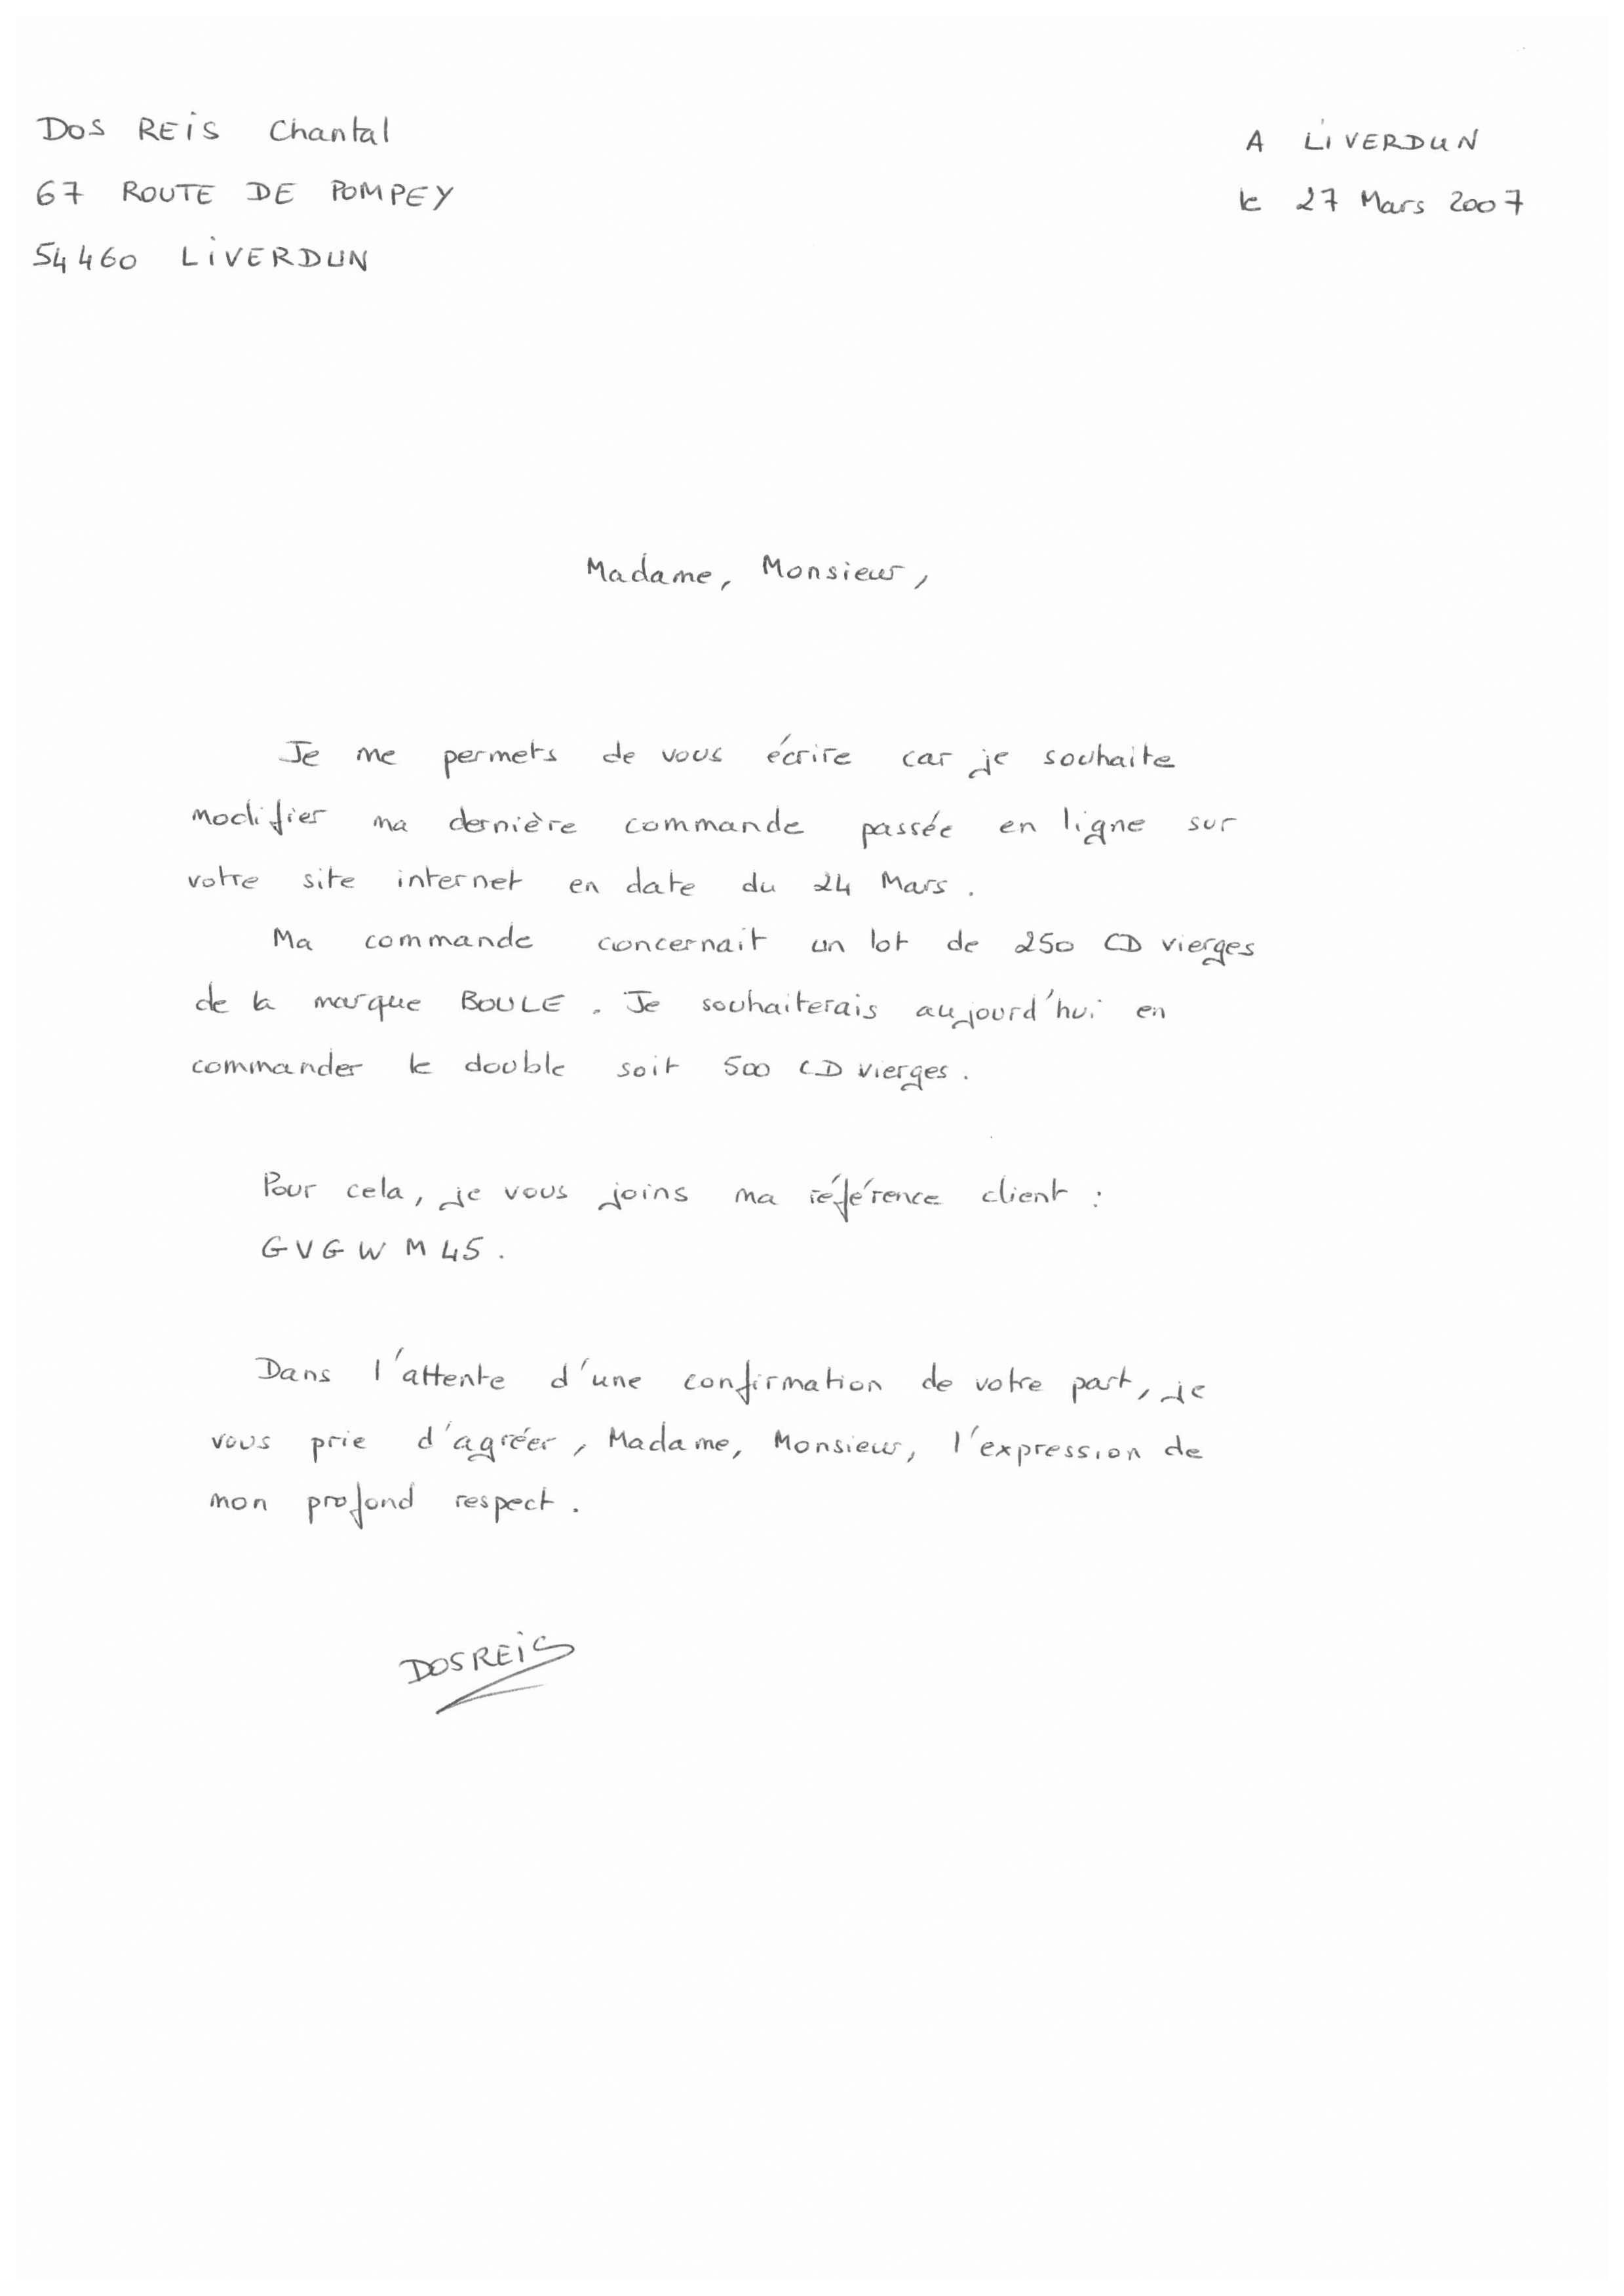 DOS REIS Chantal
67 ROUTE DE POMPEY
54460 LIVERDUN
A LIVERDUN
le 27 Mars 2007
Madame, Monsieur,
Je me permets de vous écrire car je souhaite
modifier ma dernière commande passée en ligne sur
votre site internet en date du 24 Mars.
Ma commande concernait un lot de 250 CD vierges
de la marque BOULE. Je souhaiterais aujourd'hui en
commander le double soit 500 CD vierges.
Pour cela, je vous joins ma référence client :
GVGWM45.
Dans l'attente d'une confirmation de votre part, je
vous prie d'agréer, Madame, Monsieur, l'expression de
mon profond respect.
DOS REIS